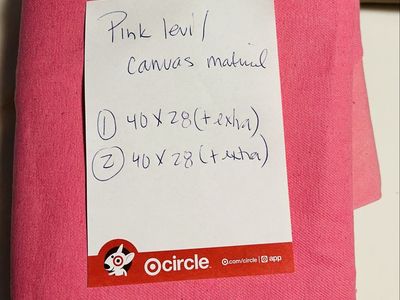 Pink levi/
canvas material
① 40 x 28 (+ extra)
② 40 x 28 (+ extra)
circle™
.com/circle | app